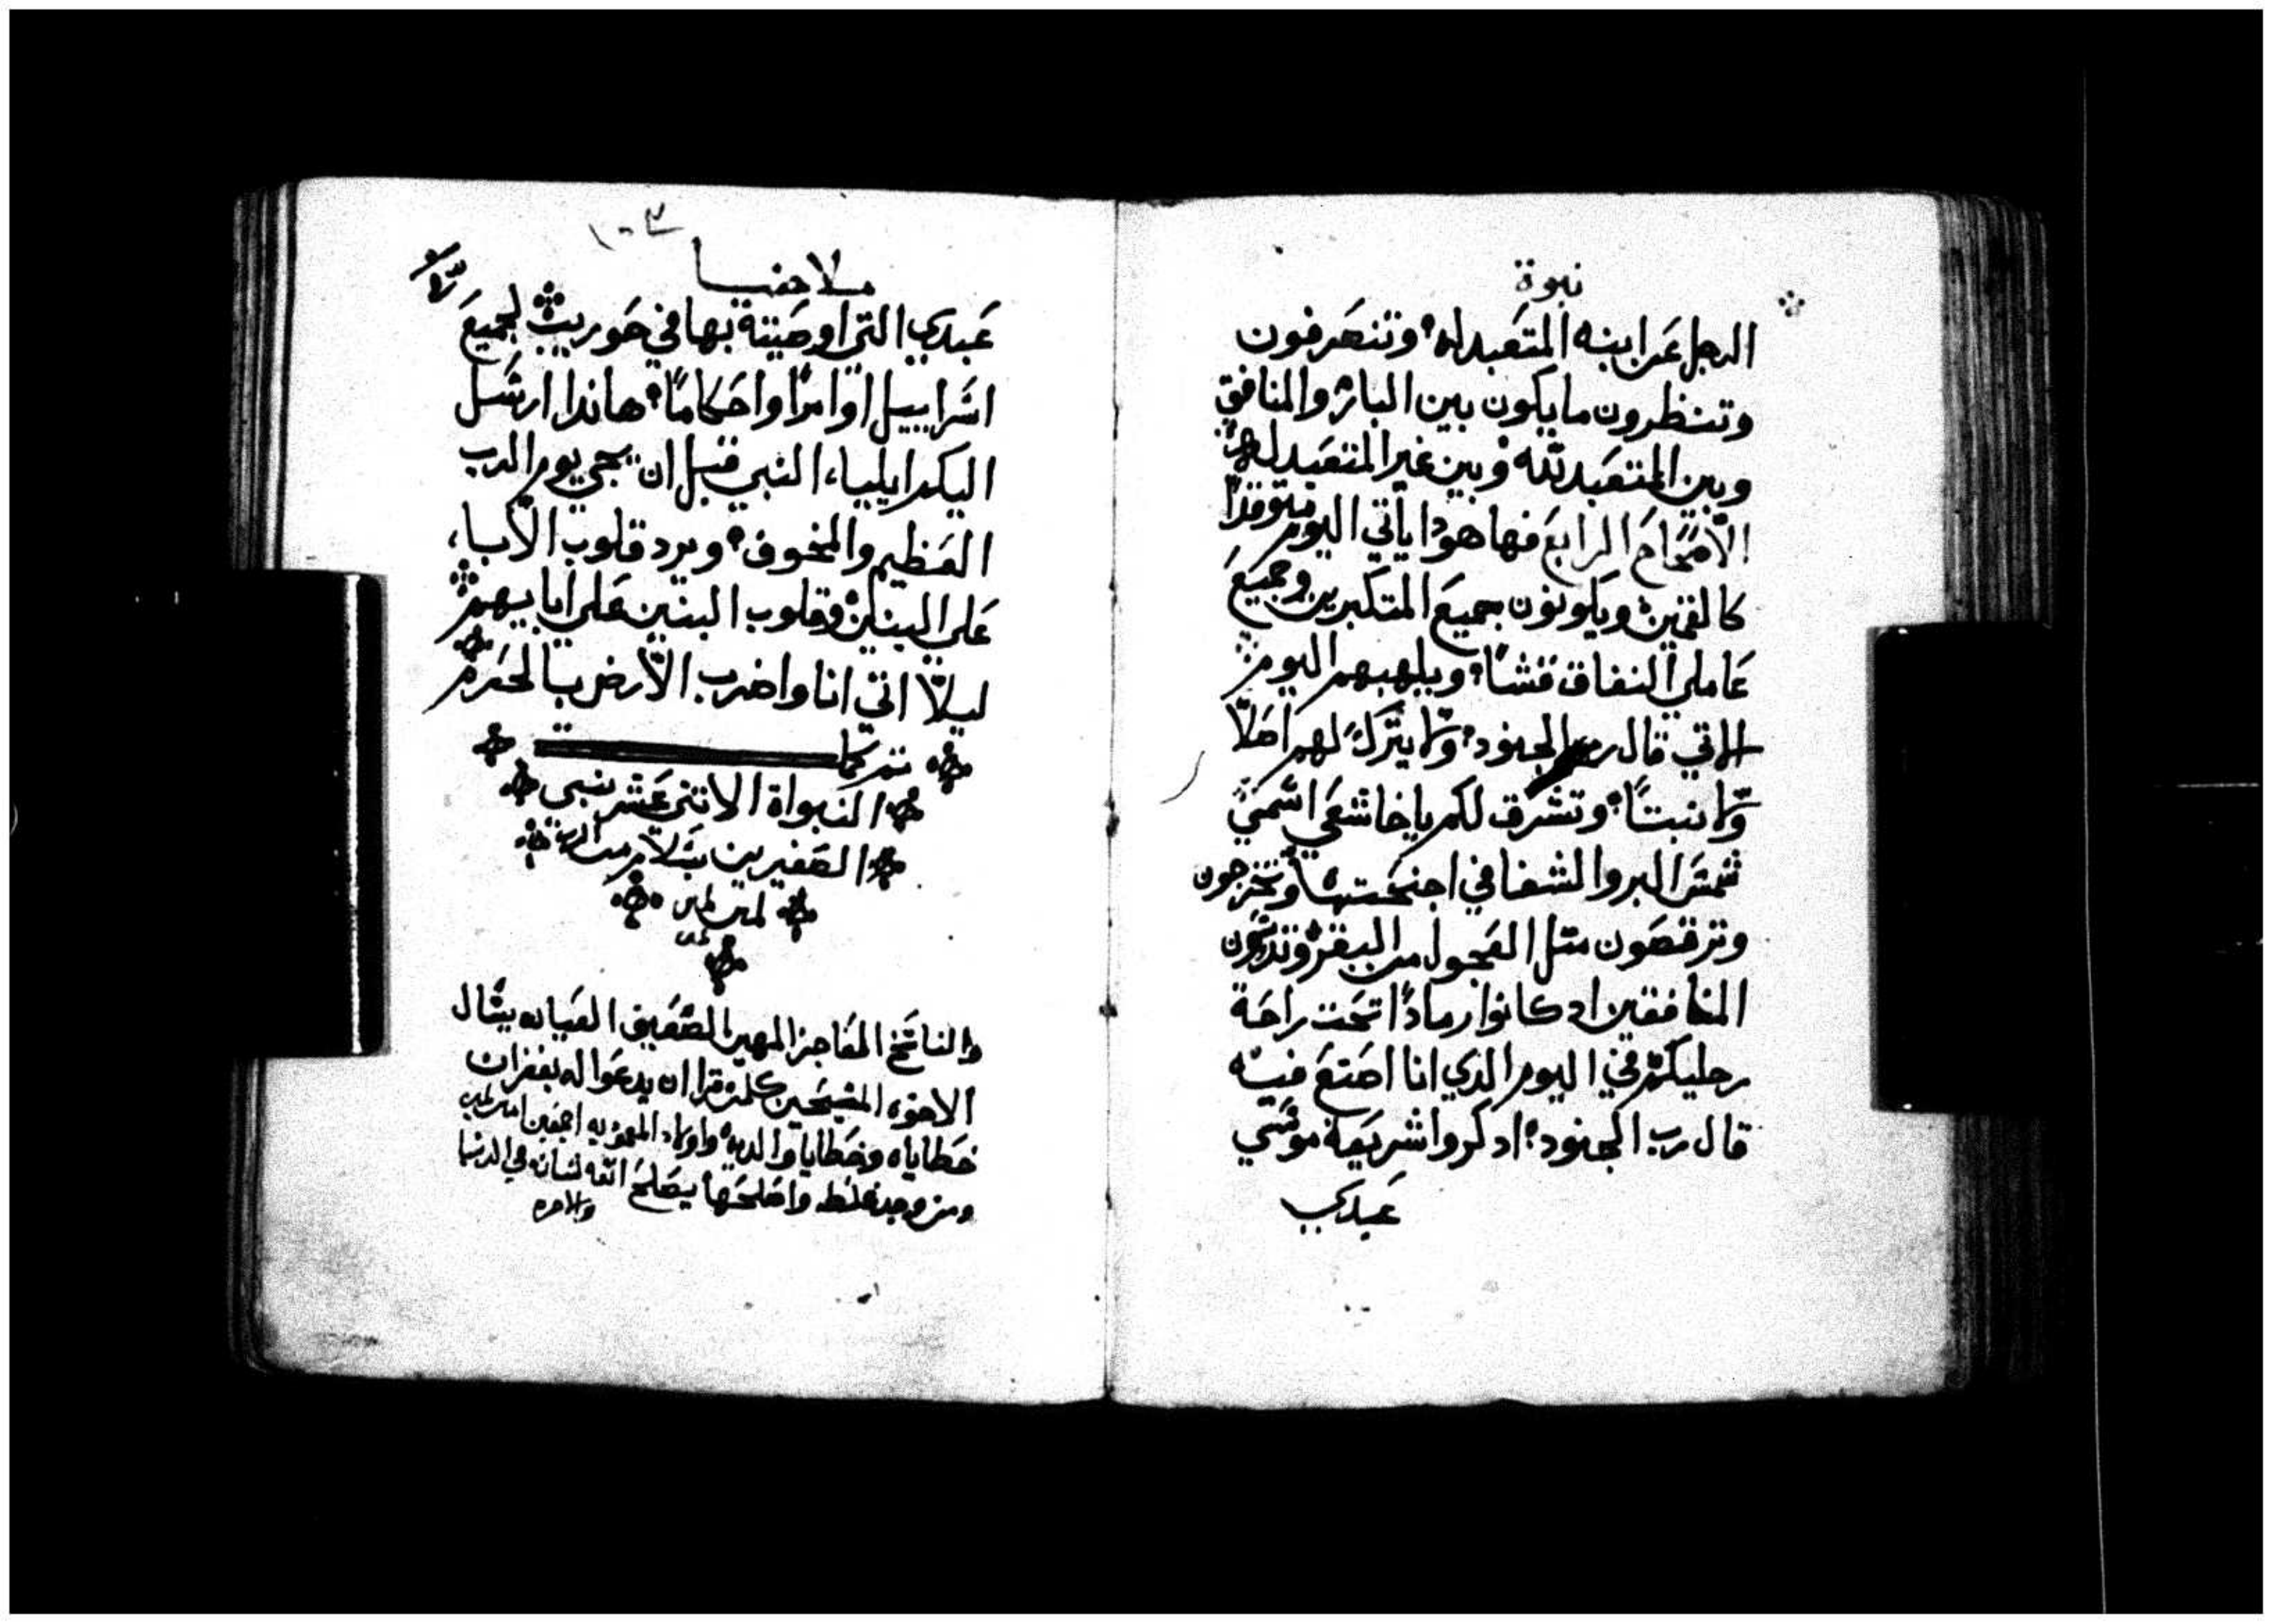 نبوة
الرجل عن ابنه المتعبد له وتنصرفون
وتنظرون ما يكون بين البار والمنافق
وبين المتعبد لله وبين غير المتعبد له
الاصحاح الرابع فها هودا ياتي اليوم متوقدًا
كالقمين ويكونون جميع المتكبرين وجميع
عاملي النفاق قشا ويلهبهم اليوم
الاتي قال رب الجنود ولا يترك لهم اصلًا
ولا نبتًا وتشرق لكم يا خاشعي اسمي
شمس البر والشفا في اجنحتها وتخرجون
وترقصون متل العجول من البقر وتدوسون
المنافقين اد كانوا رمادًا تحت راحة
رجليكم في اليوم الدي انا اصنع فيه
قال رب الجنود ادكروا شريعة موسي
عبدي
١٠٣
ملاخيا
عبدي التي اوصيته بها في حوريب لجميع
اسراييل اوامرًا واحكامًا هاندا ارسل
اليكم ايلياء النبي قبل ان يجي يوم الرب
العظيم والمخوف ويرد قلوب الاباء
على البنين وقلوب البنين على ابايهم
ليلا اتي انا واضرب الارض بالحرم
تم كما
النبواة الاتني عشر نبي
الصغيرين بسلام من الرب
امين امين
والناسخ العاجز المهين الضعيف العيان يسال
الاخوه المسيحين كلمن قرا ان يدعوا له بغفران
خطاياه وخطايا والديه واولاد المعموديه اجمعين امين
ومن وجد غلطه واصلحها يصلح الله لسانه في الدنيا
والاخره